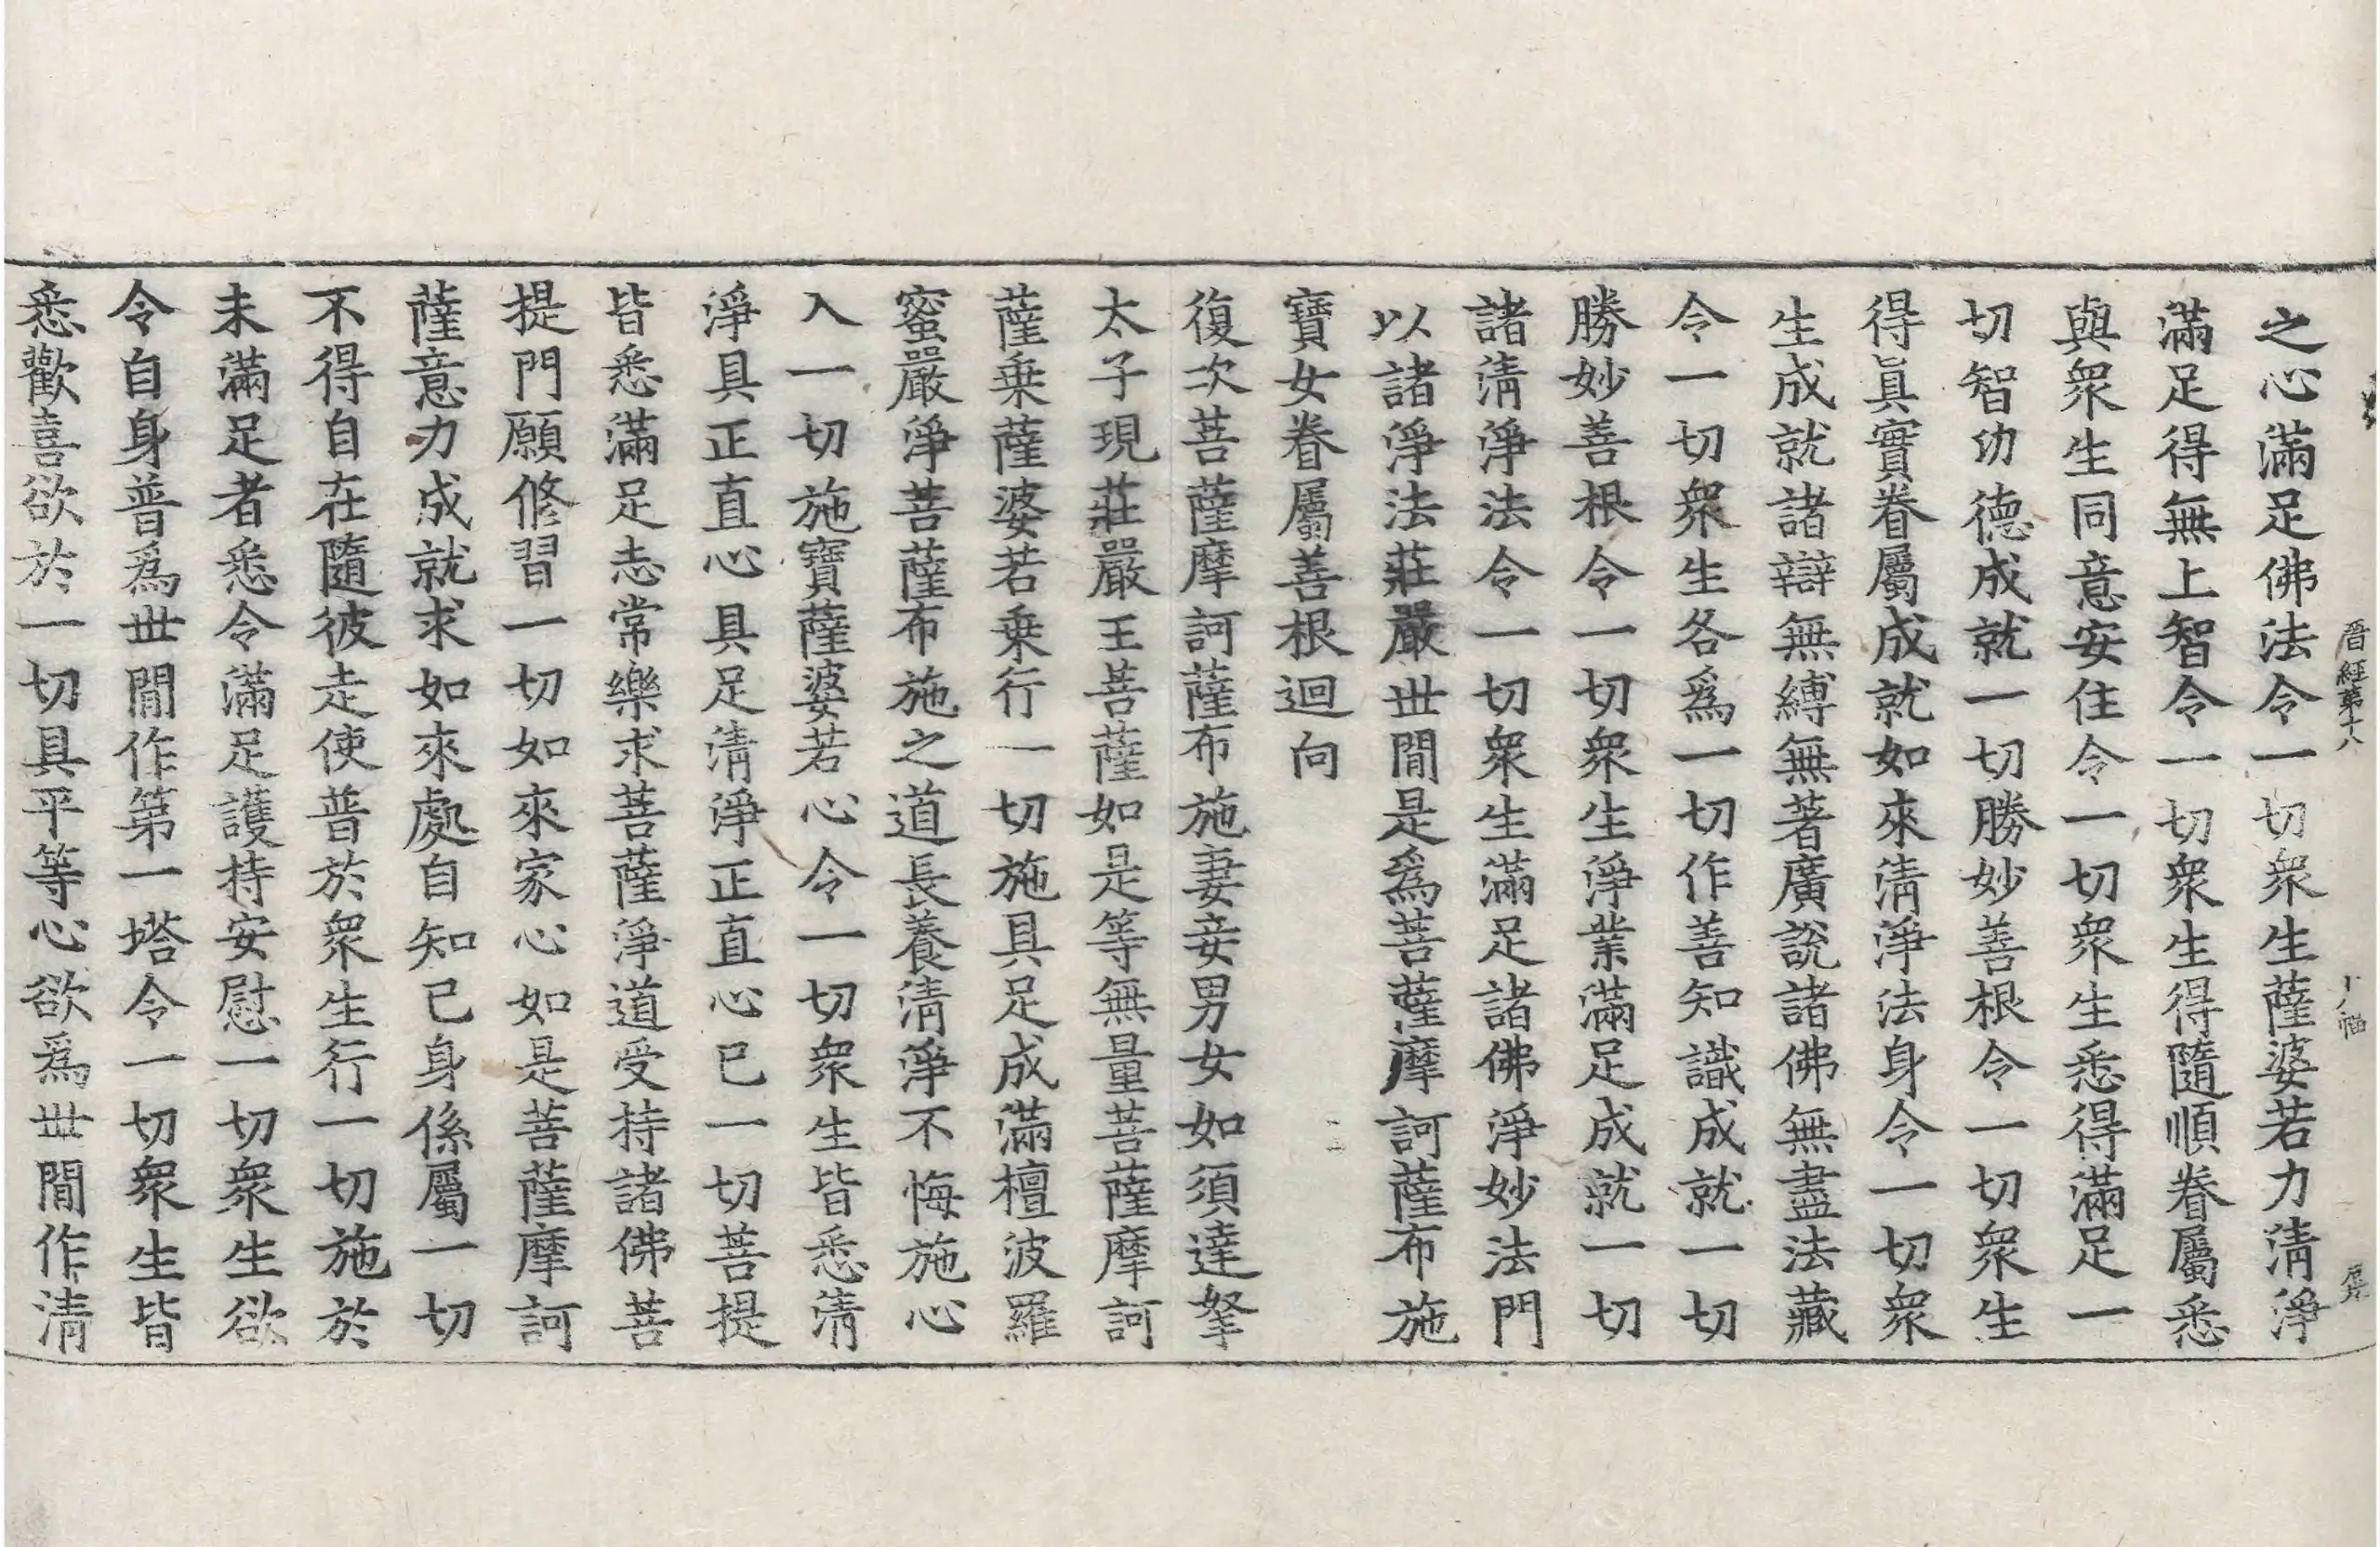 晉經第十八 十八幅
之心滿足佛法令一切衆生薩婆若力淸淨
滿足得無上智令一切衆生得隨順眷屬悉
與衆生同意安住令一切衆生悉得滿足一
切智功德成就一切勝妙善根令一切衆生
得眞實眷屬成就如來淸淨法身令一切衆
生成就諸辯無縛無著廣說諸佛無盡法藏
令一切衆生各爲一切作善知識成就一切
勝妙善根令一切衆生淨業滿足成就一切
諸淸淨法令一切衆生滿足諸佛淨妙法門
以諸淨法莊嚴世閒是爲菩薩摩訶薩布施
寶女眷屬善根迴向
復次菩薩摩訶薩布施妻妾男女如須達拏
太子現莊嚴王菩薩如是等無量菩薩摩訶
薩乗薩婆若乗行一切施具足成滿檀波羅
蜜嚴淨菩薩布施之道長養淸淨不悔施心
入一切施寶薩婆若心令一切衆生皆悉淸
淨具正直心具足淸淨正直心已一切菩提
皆悉滿足志常樂求菩薩淨道受持諸佛菩
提門願修習一切如來家心如是菩薩摩訶
薩意力成就求如來處自知己身係屬一切
不得自在隨彼走使普於衆生行一切施於
未滿足者悉令滿足護持安慰一切衆生欲
令自身普爲世閒作第一塔令一切衆生皆
悉歡喜欲於一切具平等心欲爲世閒作淸